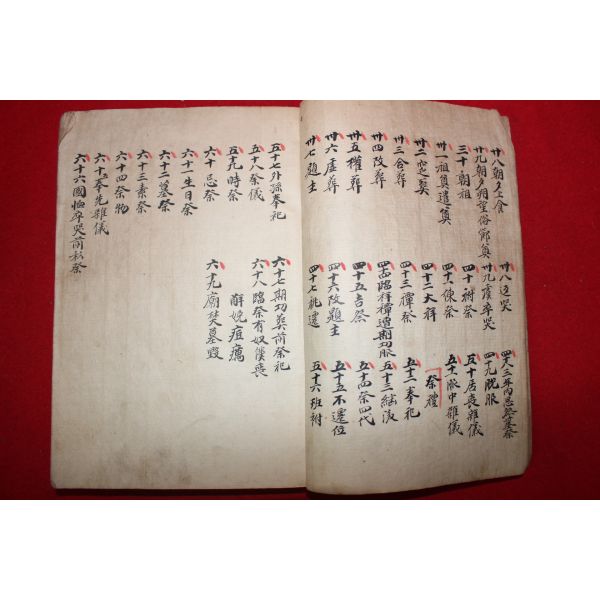 廿八朝夕上食
廿九朝夕朔望俗節奠
三十朝祖
卅一祖奠遣奠
卅二窆奠
卅三合葬
卅四改葬
卅五權葬
卅六虛葬
卅七題主
卅八返哭
卅九虞卒哭
四十祔祭
四十一練祭
四十二大祥
四十三禫祭
四十四臨祥禫遭期功服
四十五吉祭
四十六改題主
四十七祧遷
四十八三年內忌祭墓祭
四十九脫服
五十居喪雜儀
五十一服中雜儀
祭禮
五十二奉祀
五十三繼後
五十四祭四代
五十五不遷位
五十六班祔
五十七外孫奉祀
五十八祭儀
五十九時祭
六十忌祭
六十一生日祭
六十二墓祭
六十三素祭
六十四祭物
六十五奉先雜儀
六十六國恤卒哭前私祭
六十七期功葬前祭祀
六十八臨祭有奴僕喪
解娩痘癘
六十九廟焚墓毁